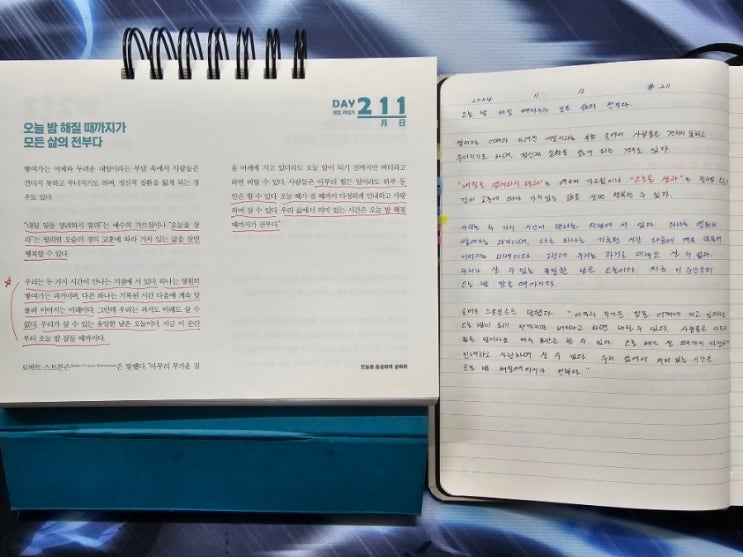 DAY 211
내일 카네기
月 日
오늘 밤 해질 때까지가
모든 삶의 전부다
쌓여가는 어제와 두려운 내일이라는 부담 속에서 사람들은
견디지 못하고 무너지기도 하며, 정신적 질환을 앓게 되는 경
우도 있다.
"내일 일을 염려하지 말라"는 예수의 가르침이나 "오늘을 살
라"는 윌리엄 오슬러 경의 교훈에 따라 가치 있는 삶을 살면
행복할 수 있다.
우리는 두 가지 시간이 만나는 지점에 서 있다. 하나는 영원히
쌓여가는 과거이며, 다른 하나는 기록된 시간 다음에 계속 맞
물려 이어지는 미래이다. 그런데 우리는 과거도 미래도 살 수
없다. 우리가 살 수 있는 유일한 날은 오늘이다. 지금 이 순간
부터 오늘 밤 잠들 때까지다.
로버트 스티븐슨은 말했다. "아무리 무거운 짐
을 어깨에 지고 있더라도 오늘 밤이 되기 전까지만 버티라고
하면 버틸 수 있다. 사람들은 아무리 힘든 일이라도 하루 동
안은 할 수 있다. 오늘 해가 질 때까지 다정하게 인내하고 사랑
하며 살 수 있다. 우리 삶에서 의미 있는 시간은 오늘 밤 해질
때까지가 전부다."
오늘을 충실하게 살아라
2024 11 13 #211
오늘 밤 해질 때까지가 모든 삶의 전부다.
쌓여가는 어제와 두려운 내일이라는 부담 속에서 사람들은 견디지 못하고
무너지기도 하며, 정신적 질환을 앓게 되는 경우도 있다.
"내일 일을 염려하지 말라"는 예수의 가르침이나 "오늘을 살라"는 윌리엄
경의 교훈에 따라 가치 있는 삶을 살면 행복할 수 있다.
우리는 두 가지 시간이 만나는 지점에 서 있다. 하나는 영원히
쌓여가는 과거이며, 다른 하나는 기록된 시간 다음에 계속 맞물려
이어지는 미래이다. 그런데 우리는 과거도 미래도 살 수 없다.
우리가 살 수 있는 유일한 날은 오늘이다. 지금 이 순간부터
오늘 밤 잠들 때까지다.
로버트 스티븐슨은 말했다. "아무리 무거운 짐을 어깨에 지고 있더라도
오늘 밤이 되기 전까지만 버티라고 하면 버틸 수 있다. 사람들은 아무리
힘든 일이라도 하루 동안은 할 수 있다. 오늘 해가 질 때까지 다정하게
인내하고 사랑하며 살 수 있다. 우리 삶에서 의미 있는 시간은
오늘 밤 해질때까지가 전부다."